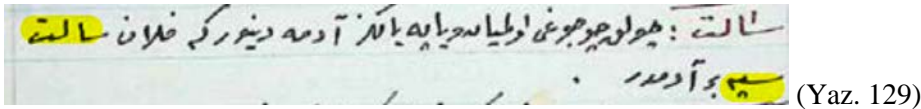 سالت : چولق چوجوغی اولمیان و یاپه یالکز آدمه دینور که فلان سالت
سیپ بر آدمدر .
(Yaz. 129)